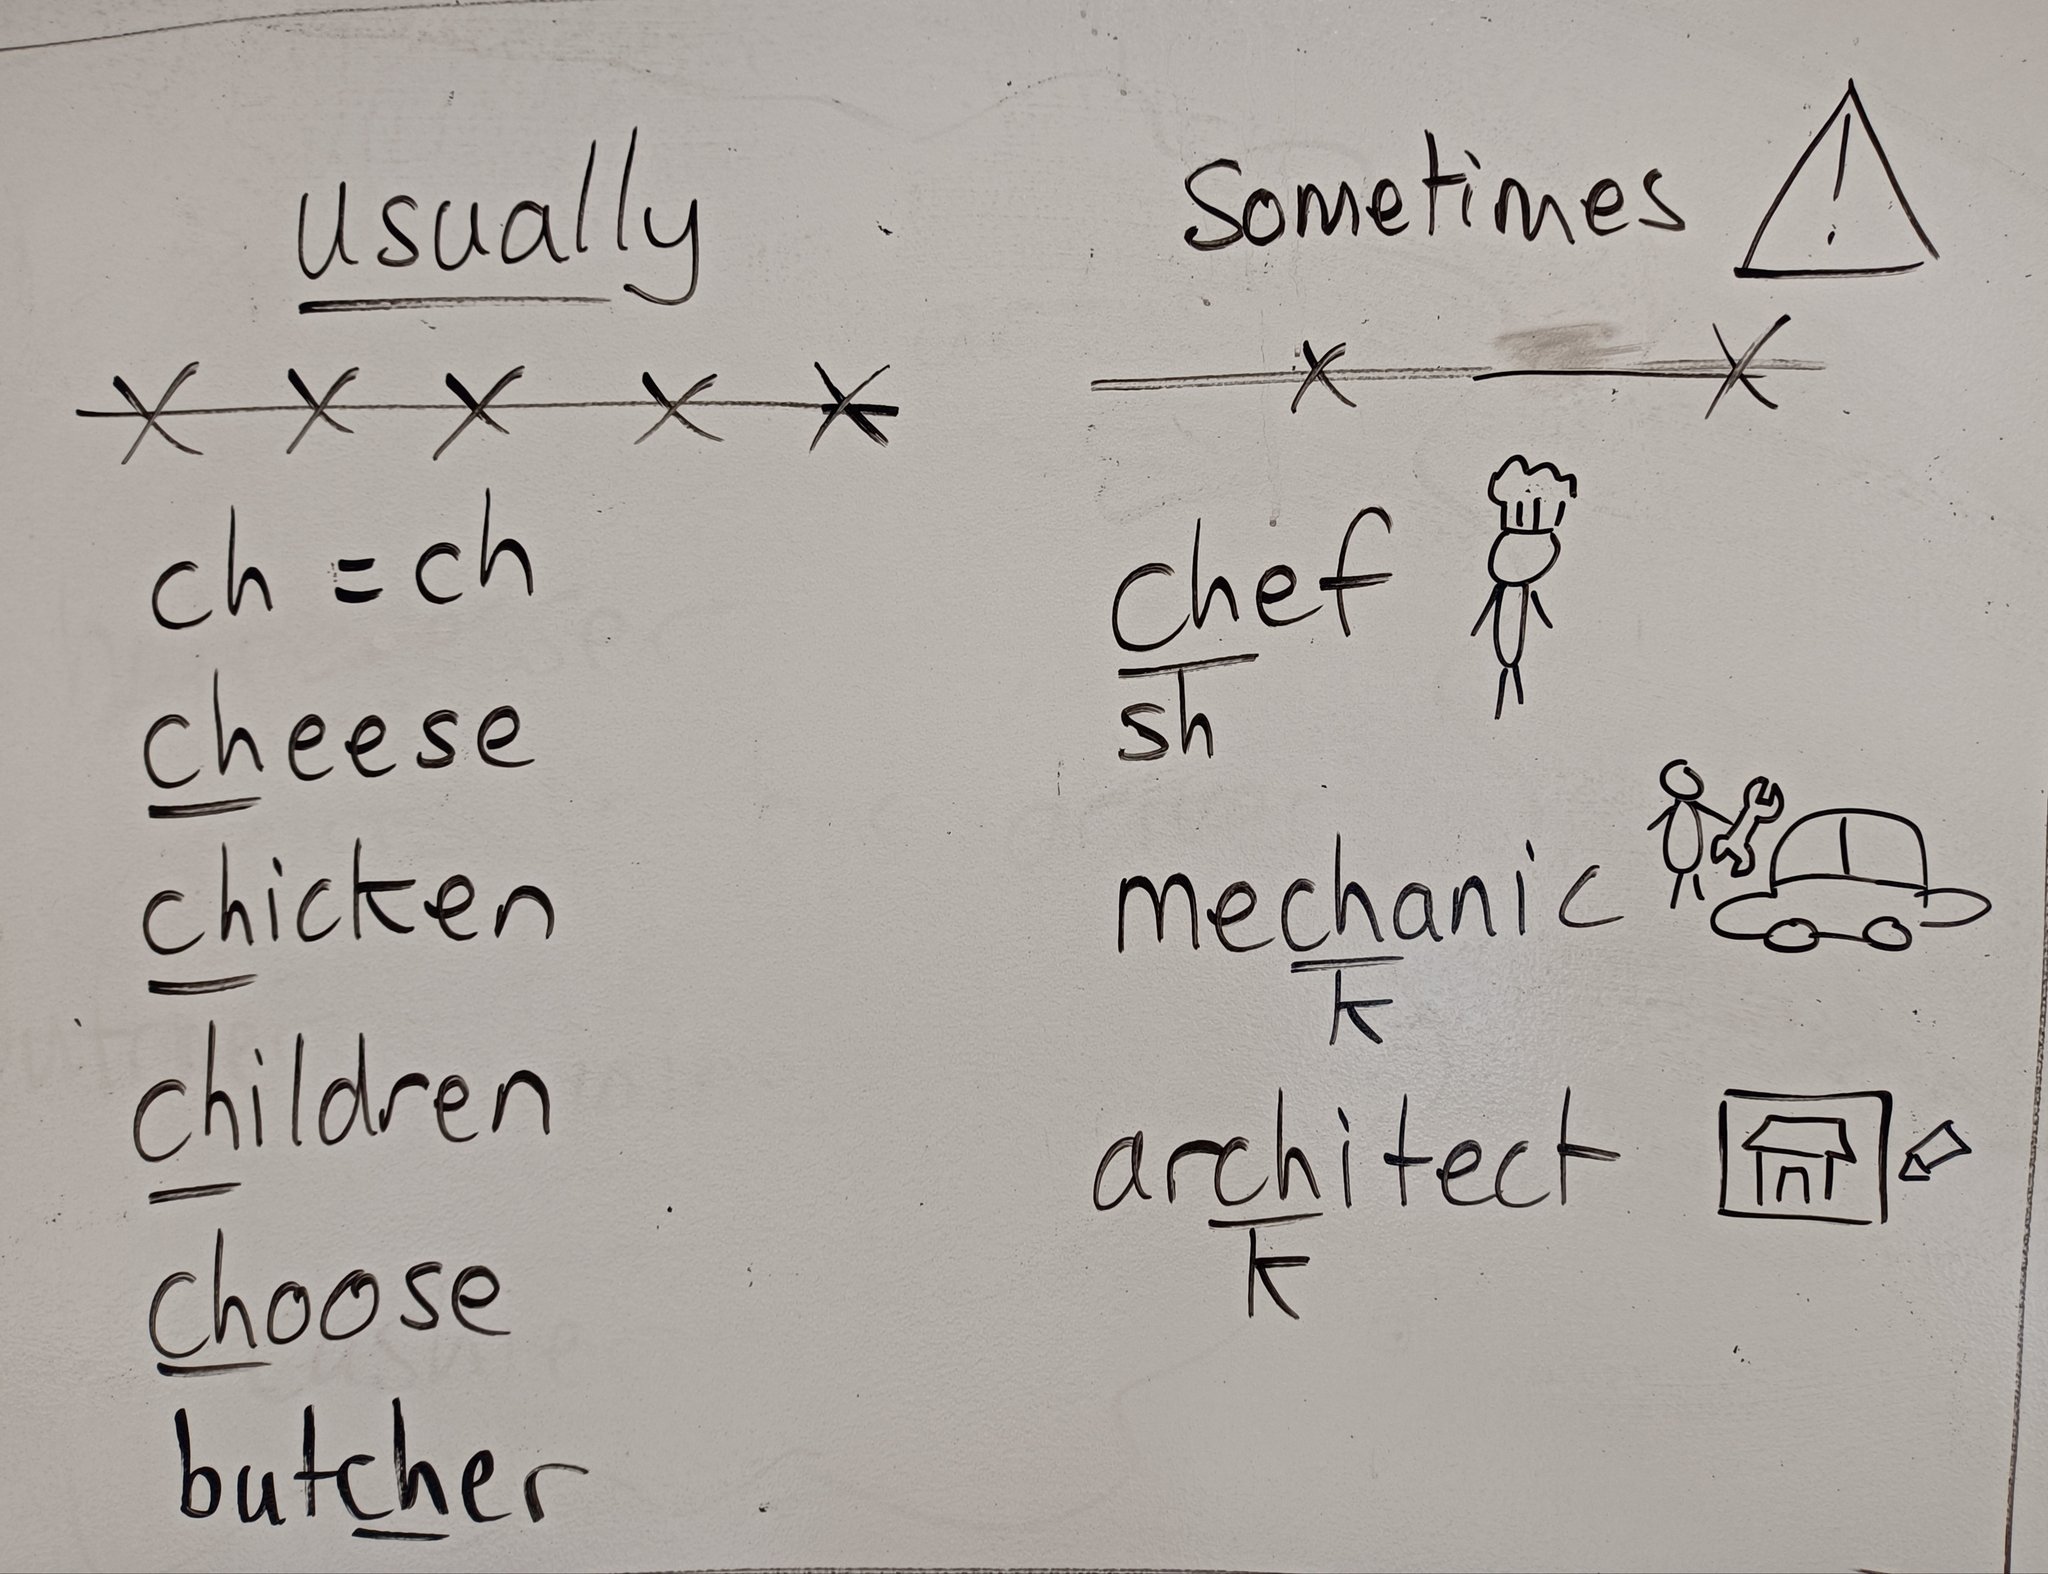 usually
ch = ch
cheese
chicken
children
choose
butcher
Sometimes !
chef
sh
mechanic
k
architect
k